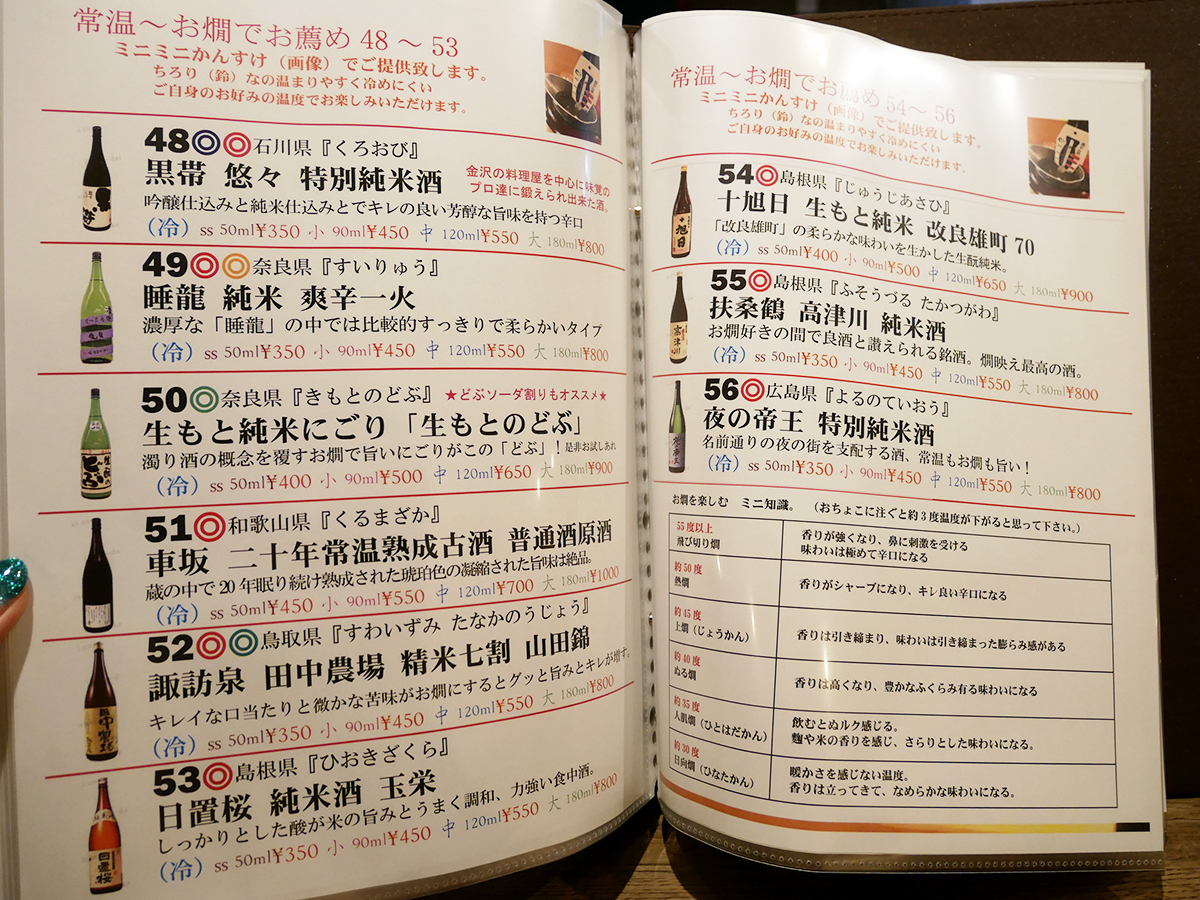 常温～お燗でお薦め 48 ～ 53
ミニミニかんすけ（画像）でご提供致します。
ちろり（鈴）なの温まりやすく冷めにくい
ご自身のお好みの温度でお楽しみいただけます。
48◎◎石川県『くろおび』
黒帯 悠々 特別純米酒
金沢の料理屋を中心に味覚の
プロ達に鍛えられ出来た酒。
吟醸仕込みと純米仕込みとでキレの良い芳醇な旨味を持つ辛口
（冷） ss 50ml¥350 小 90ml¥450 中 120ml¥550 大 180ml¥800
49◎◎奈良県『すいりゅう』
睡龍 純米 爽辛一火
濃厚な「睡龍」の中では比較的すっきりで柔らかいタイプ
（冷） ss 50ml¥350 小 90ml¥450 中 120ml¥550 大 180ml¥800
50◎奈良県『きもとのどぶ』 ★どぶソーダ割りもオススメ★
生もと純米にごり「生もとのどぶ」
濁り酒の概念を覆すお燗で旨いにごりがこの「どぶ」！是非お試しあれ
（冷） ss 50ml¥400 小 90ml¥500 中 120ml¥650 大 180ml¥900
51◎和歌山県『くるまざか』
車坂 二十年常温熟成古酒 普通酒原酒
蔵の中で 20 年眠り続け熟成された琥珀色の凝縮された旨味は絶品。
（冷） ss 50ml¥450 小 90ml¥550 中 120ml¥700 大 180ml¥1000
52◎◎鳥取県『すわいずみ たなかのうじょう』
諏訪泉 田中農場 精米七割 山田錦
キレイな口当たりと微かな苦味がお燗にするとグッと旨みとキレが増す。
（冷） ss 50ml¥350 小 90ml¥450 中 120ml¥550 大 180ml¥800
53◎島根県『ひおきざくら』
日置桜 純米酒 玉栄
しっかりとした酸が米の旨みとうまく調和、力強い食中酒。
（冷） ss 50ml¥350 小 90ml¥450 中 120ml¥550 大 180ml¥800
常温～お燗でお薦め 54 ～ 56
ミニミニかんすけ（画像）でご提供致します。
ちろり（鈴）なの温まりやすく冷めにくい
ご自身のお好みの温度でお楽しみいただけます。
54◎島根県『じゅうじあさひ』
十旭日 生もと純米 改良雄町 70
「改良雄町」の柔らかな味わいを生かした生酛純米。
（冷） ss 50ml¥400 小 90ml¥500 中 120ml¥650 大 180ml¥900
55◎島根県『ふそうづる たかつがわ』
扶桑鶴 高津川 純米酒
お燗好きの間で良酒と讃えられる銘酒。燗映え最高の酒。
（冷） ss 50ml¥350 小 90ml¥450 中 120ml¥550 大 180ml¥800
56◎広島県『よるのていおう』
夜の帝王 特別純米酒
名前通りの夜の街を支配する酒、常温もお燗も旨い！
（冷） ss 50ml¥350 小 90ml¥450 中 120ml¥550 大 180ml¥800
お燗を楽しむ ミニ知識。 （おちょこに注ぐと約 3 度温度が下がると思って下さい。）
55 度以上
飛び切り燗
香りが強くなり、鼻に刺激を受ける
味わいは極めて辛口になる
約 50 度
熱燗
香りがシャープになり、キレ良い辛口になる
約 45 度
上燗（じょうかん）
香りは引き締まり、味わいは引き締まった膨らみ感がある
約 40 度
ぬる燗
香りは高くなり、豊かなふくらみ有る味わいになる
約 35 度
人肌燗（ひとはだかん）
飲むとぬルク感じる。
麹や米の香りを感じ、さらりとした味わいになる。
約 30 度
日向燗（ひなたかん）
暖かさを感じない温度。
香りは立ってきて、なめらかな味わいになる。